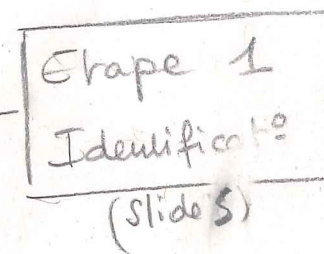 Etape 1
Identificatº
(Slide 5)